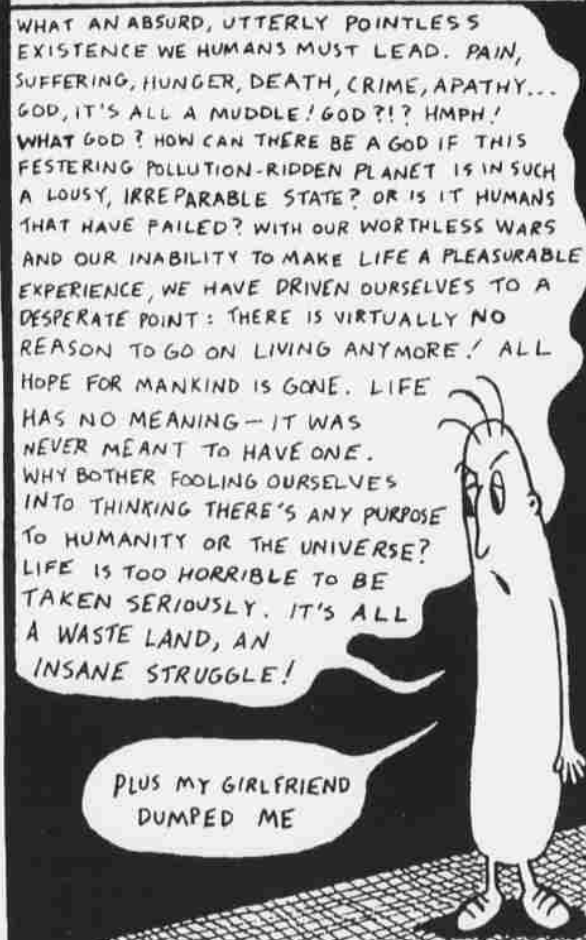 WHAT AN ABSURD, UTTERLY POINTLESS
EXISTENCE WE HUMANS MUST LEAD. PAIN,
SUFFERING, HUNGER, DEATH, CRIME, APATHY...
GOD, IT'S ALL A MUDDLE! GOD?!? HMPH!
WHAT GOD? HOW CAN THERE BE A GOD IF THIS
FESTERING POLLUTION-RIDDEN PLANET IS IN SUCH
A LOUSY, IRREPARABLE STATE? OR IS IT HUMANS
THAT HAVE FAILED? WITH OUR WORTHLESS WARS
AND OUR INABILITY TO MAKE LIFE A PLEASURABLE
EXPERIENCE, WE HAVE DRIVEN OURSELVES TO A
DESPERATE POINT: THERE IS VIRTUALLY NO
REASON TO GO ON LIVING ANYMORE! ALL
HOPE FOR MANKIND IS GONE. LIFE
HAS NO MEANING — IT WAS
NEVER MEANT TO HAVE ONE.
WHY BOTHER FOOLING OURSELVES
INTO THINKING THERE'S ANY PURPOSE
TO HUMANITY OR THE UNIVERSE?
LIFE IS TOO HORRIBLE TO BE
TAKEN SERIOUSLY. IT'S ALL
A WASTE LAND, AN
INSANE STRUGGLE!
PLUS MY GIRLFRIEND
DUMPED ME